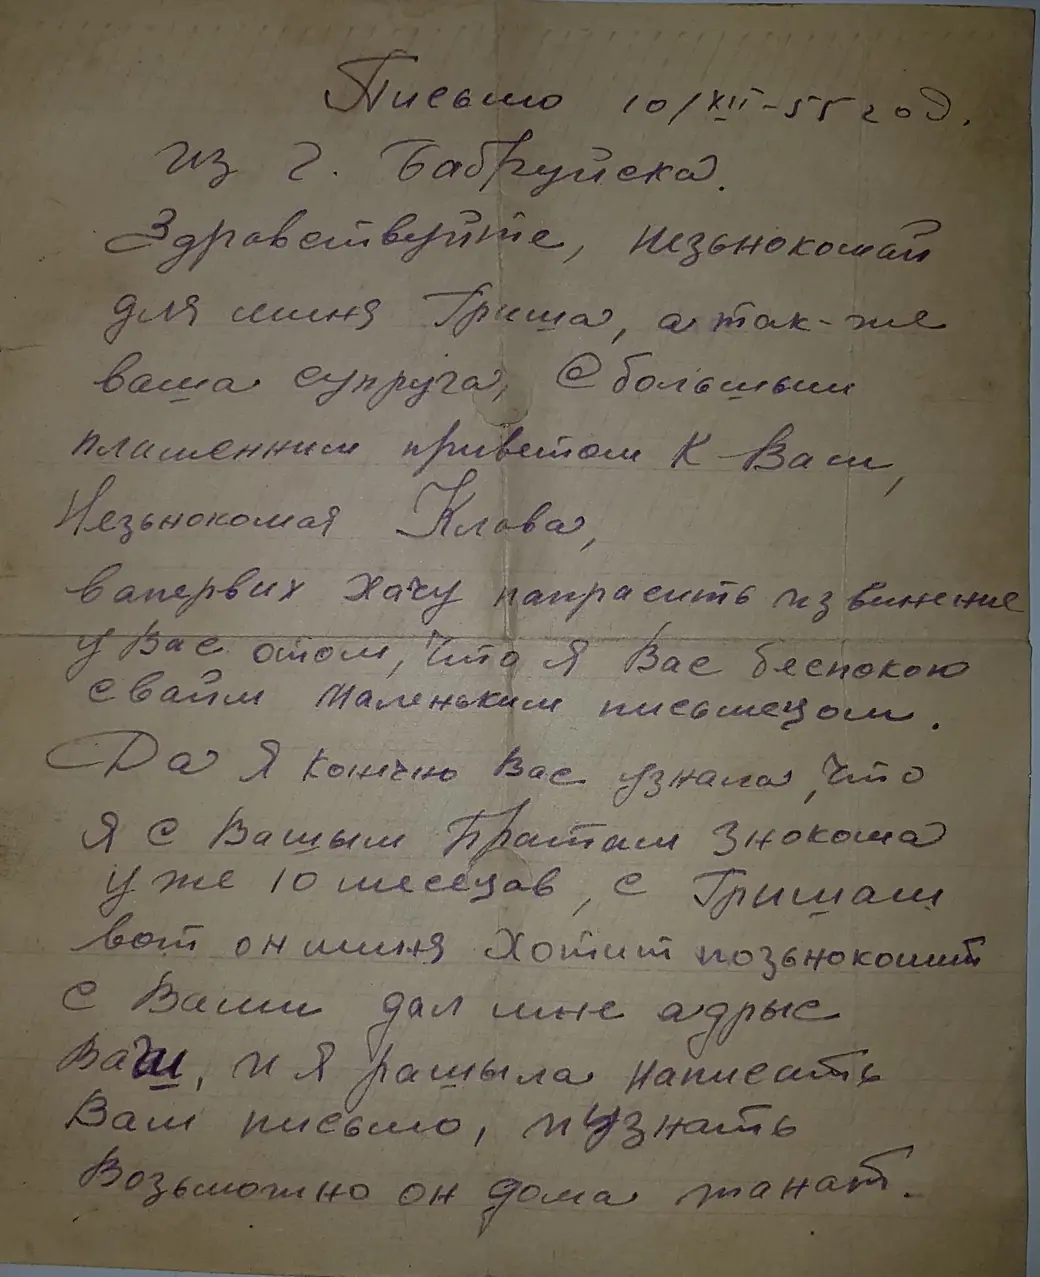 Письмо 10/XII-55 год.
из г. Бабруйска.
Здравствуйте, незьнокомай
для миня Гриша, а так-же
ваша супруга, С большым
пламенним приветом к Вам,
Незьнокомая Клава,
вапервих хачу папрасить извинение
у Вас отом, что я Вас беспокою
свайм маленьким письмецом.
Да я конично Вас узнала, что
я с Вашым Братам знокома
уже 10 месецав, с Гришай
вот он миня хотит позьнокомит
с Вами дал мне адрыс
Ваш, и я рашыла написать
Вам письмо, и узнать
Возьможно он дома жанат.